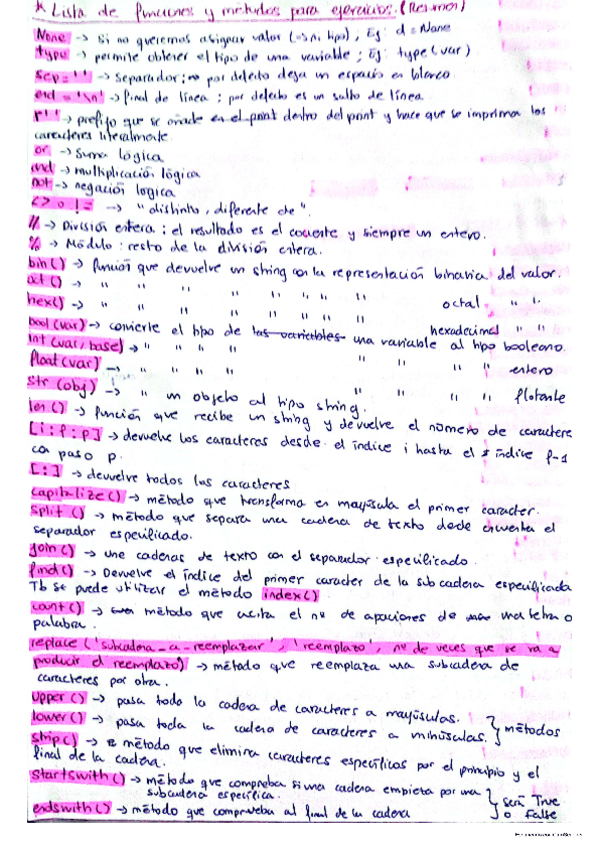 * Lista de funciones y métodos para ejercicios. (Resumen)
None -> Si no queremos asignar valor (=> ni tipo), Ej: d = None
type -> permite obtener el tipo de una variable; Ej: type(var)
sep=' ' -> Separador; por defecto deja un espacio en blanco
end = '\n' -> final de línea; por defecto es un salto de línea.
r' ' -> prefijo que se añade en el print dentro del print y hace que se imprima los
caracteres literalmente.
or -> Suma lógica
and -> multiplicación lógica
not -> negación logica
<> o != -> "distinto, diferente de".
// -> División entera; el resultado es el cociente y siempre un entero.
% -> Módulo: resto de la división entera.
bin() -> función que devuelve un string con la representación binaria del valor.
oct() -> " " " " " " " octal " "
hex() -> " " " " " " " hexadecimal " "
bool(var) -> convierte el tipo de las variables una variable al tipo booleano.
int(var, base) -> " " " " " " " entero
float(var) -> " " " " " " " flotante
str(obj) -> " un objeto al tipo string.
len() -> función que recibe un string y devuelve el número de caracteres
[i:f:p] -> devuelve los caracteres desde el índice i hasta el índice f-1
con paso p.
[:] -> devuelve todos los caracteres
capitalize() -> método que transforma en mayúscula el primer caracter.
split() -> método que separa una cadena de texto donde encuentra el
separador especificado.
join() -> une cadenas de texto con el separador especificado.
find() -> Devuelve el índice del primer caracter de la subcadena especificada
Tb se puede utilizar el método index()
count() -> método que cuenta el nº de apariciones de una letra o
palabra.
replace('subcadena_a_reemplazar', 'reemplazo', nº de veces que se va a
producir el reemplazo) -> método que reemplaza una subcadena de
caracteres por otra.
upper() -> pasa toda la cadena de caracteres a mayúsculas.
lower() -> pasa toda la cadena de caracteres a minúsculas. } métodos
strip() -> método que elimina caracteres específicos por el principio y el
final de la cadena.
startswith() -> método que comprueba si una cadena empieza por una
subcadena específica. } será True
endswith() -> método que comprueba al final de la cadena o False